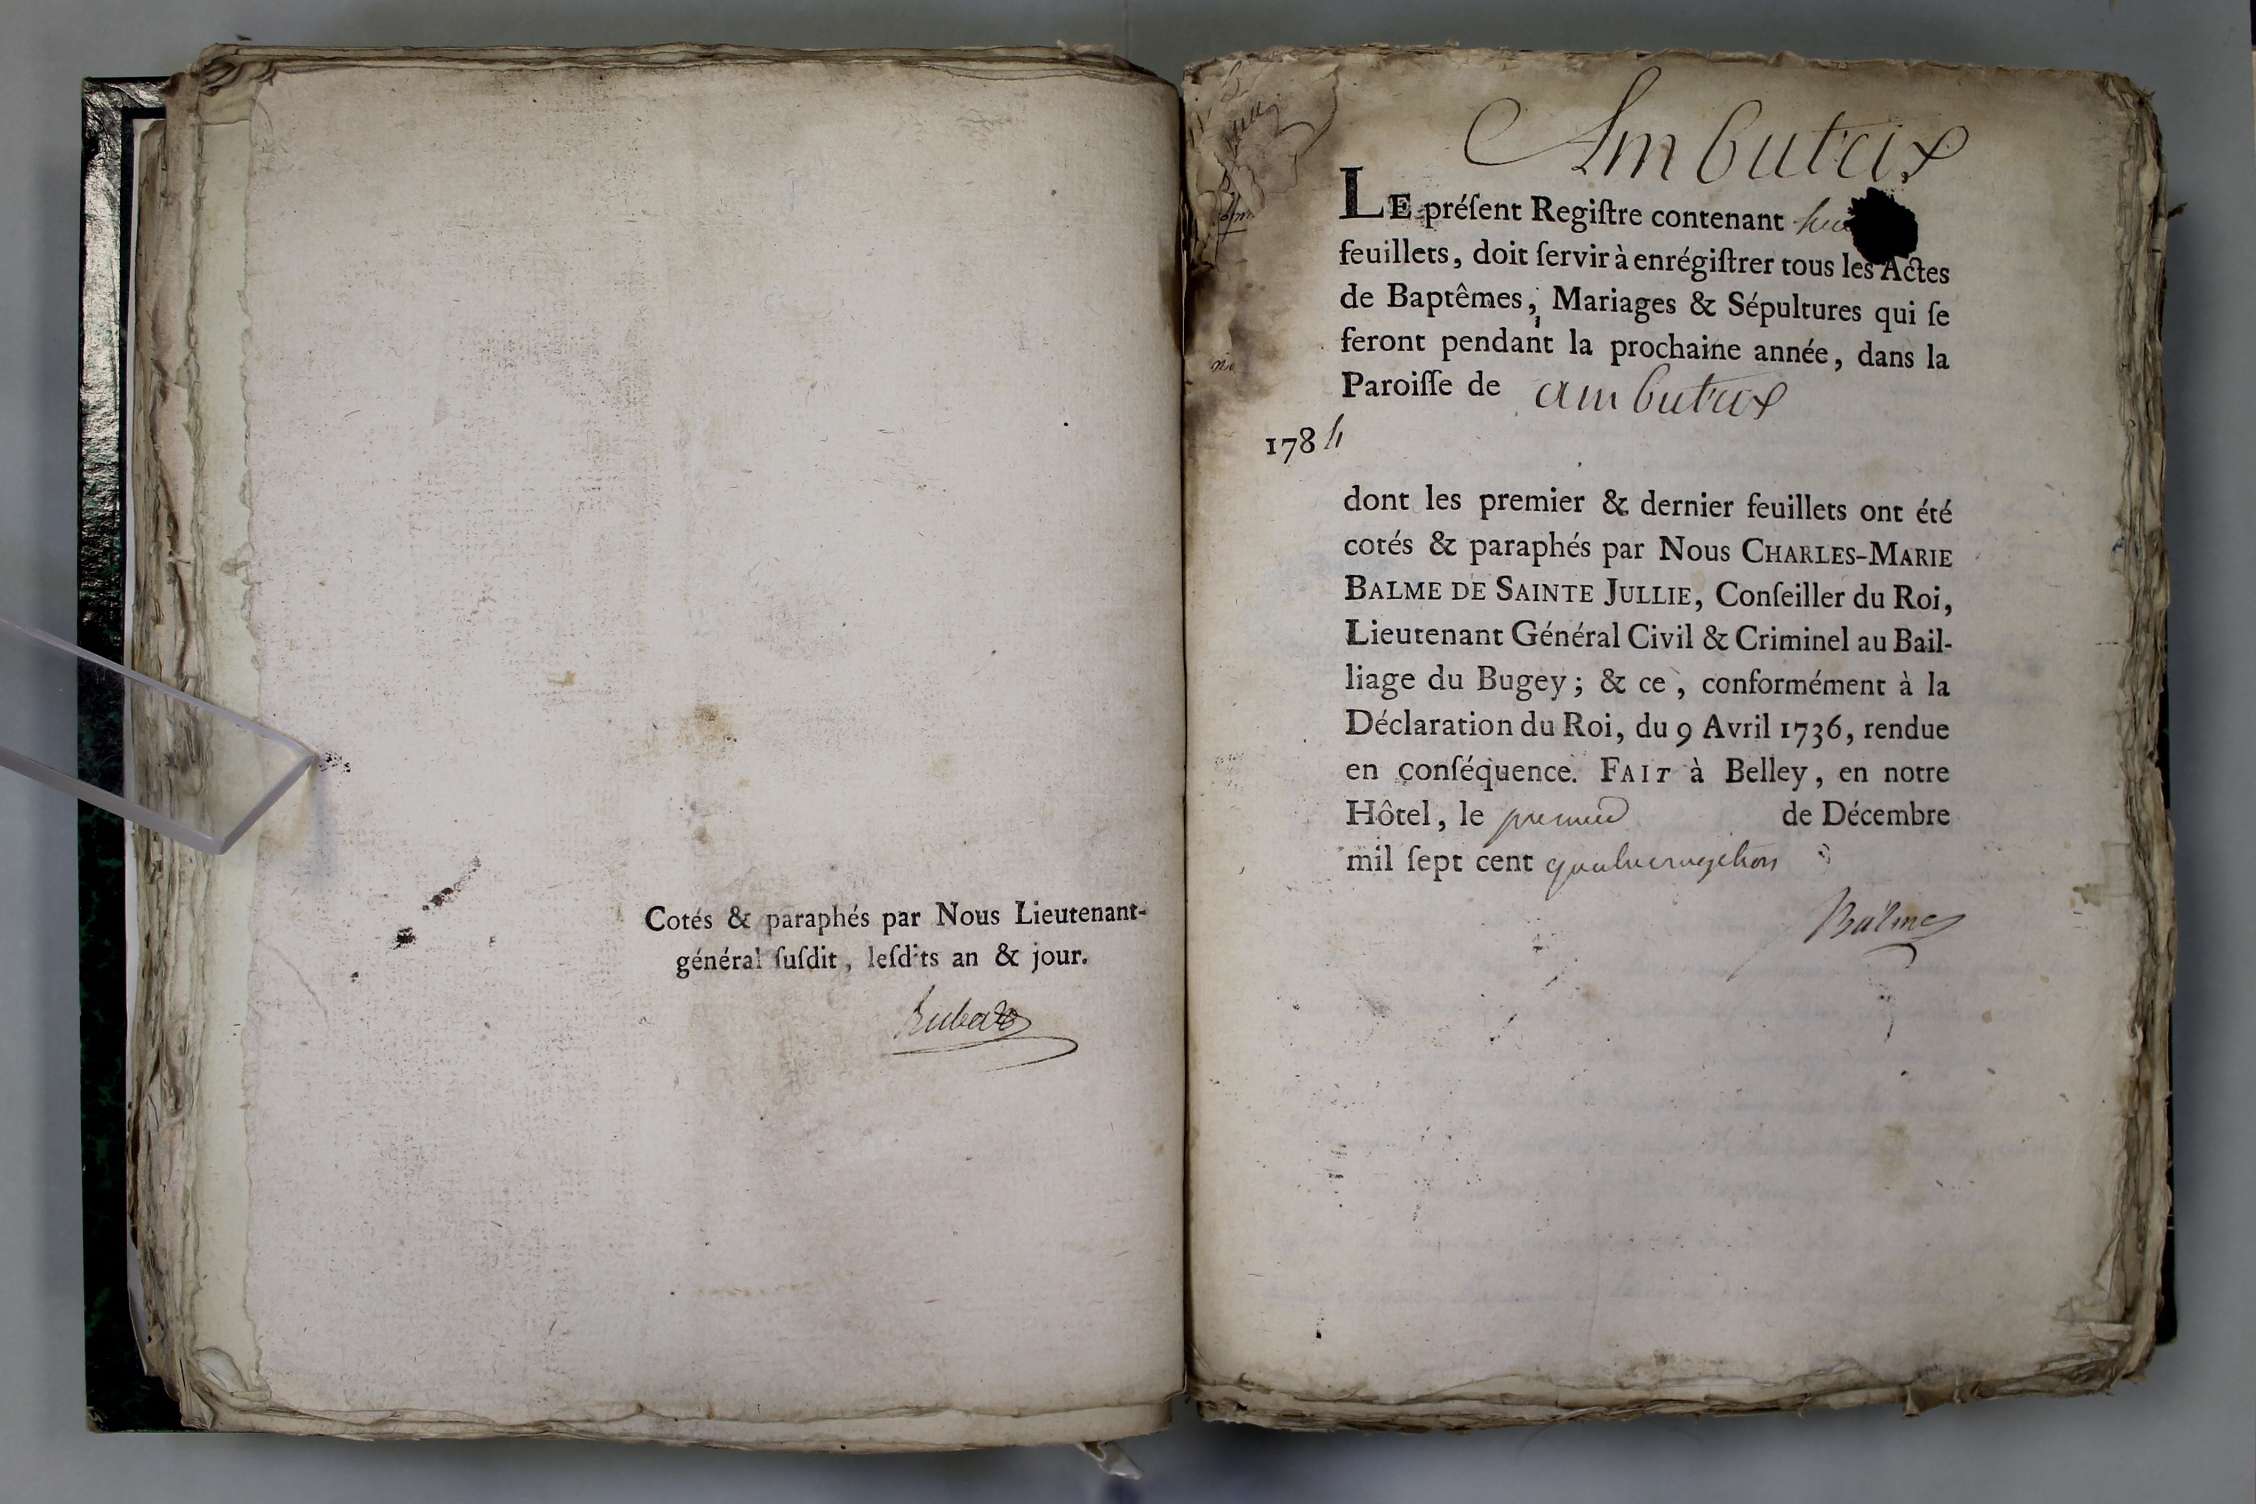 Cotés & paraphés par Nous Lieutenant-
général ſuſdit, leſdits an & jour.
Ambutrix
LE préſent Regiſtre contenant
feuillets, doit ſervir à enrégiſtrer tous les Actes
de Baptêmes, Mariages & Sépultures qui ſe
feront pendant la prochaine année, dans la
Paroiſſe de ambutrix
1784
dont les premier & dernier feuillets ont été
cotés & paraphés par Nous CHARLES-MARIE
BALME DE SAINTE JULLIE, Conſeiller du Roi,
Lieutenant Général Civil & Criminel au Bail-
liage du Bugey; & ce, conformément à la
Déclaration du Roi, du 9 Avril 1736, rendue
en conſéquence. FAIT à Belley, en notre
Hôtel, le premier de Décembre
mil ſept cent quatrevingttrois
Balme